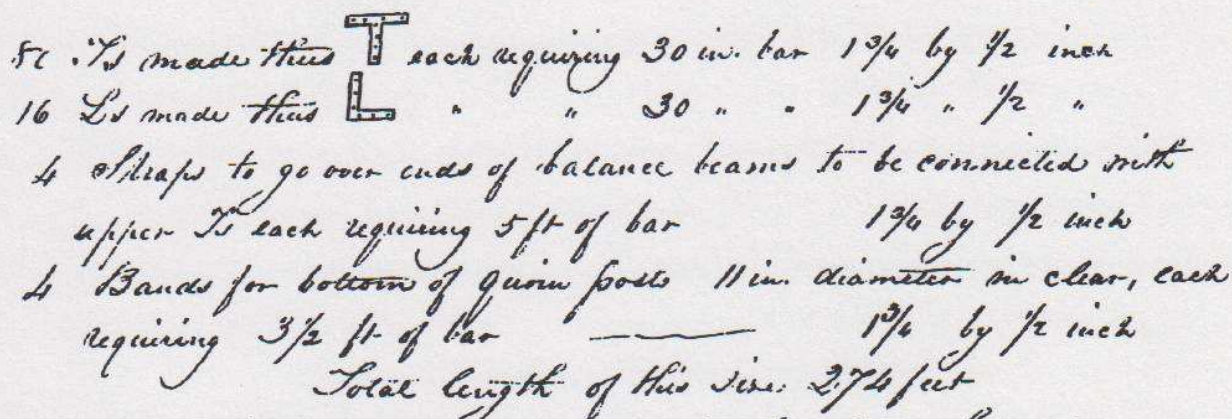 80 Ts made thus T each requiring 30 in. bar 1 3/4 by 1/2 inch
16 Ls made thus L " " 30 " " 1 3/4 " 1/2 "
4 Straps to go over ends of balance beams to be connected with
upper Ts each requiring 5 ft of bar 1 3/4 by 1/2 inch
4 Bands for bottom of quoin posts 11 in. diameter in clear, each
requiring 3 1/2 ft of bar —— 1 3/4 by 1/2 inch
Total length of this size 274 feet